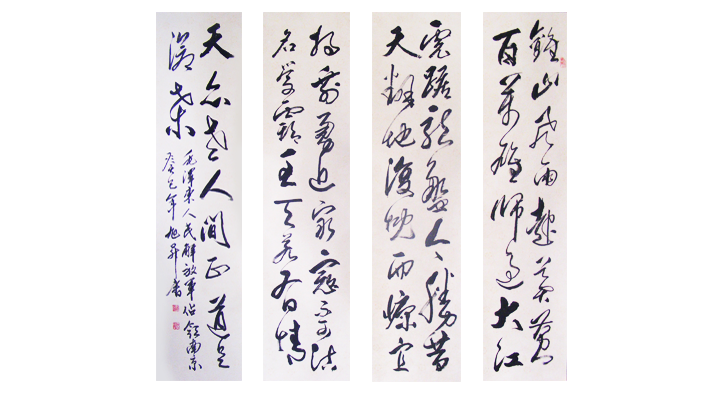 鍾山風雨起蒼黃
百萬雄師過大江
虎踞龍盤今勝昔
天翻地覆慨而慷宜
將剩勇追窮寇不可沽
名學霸王天若有情
天亦老人間正道是
滄桑
毛澤東人民解放軍佔領南京
癸巳年旭昇書